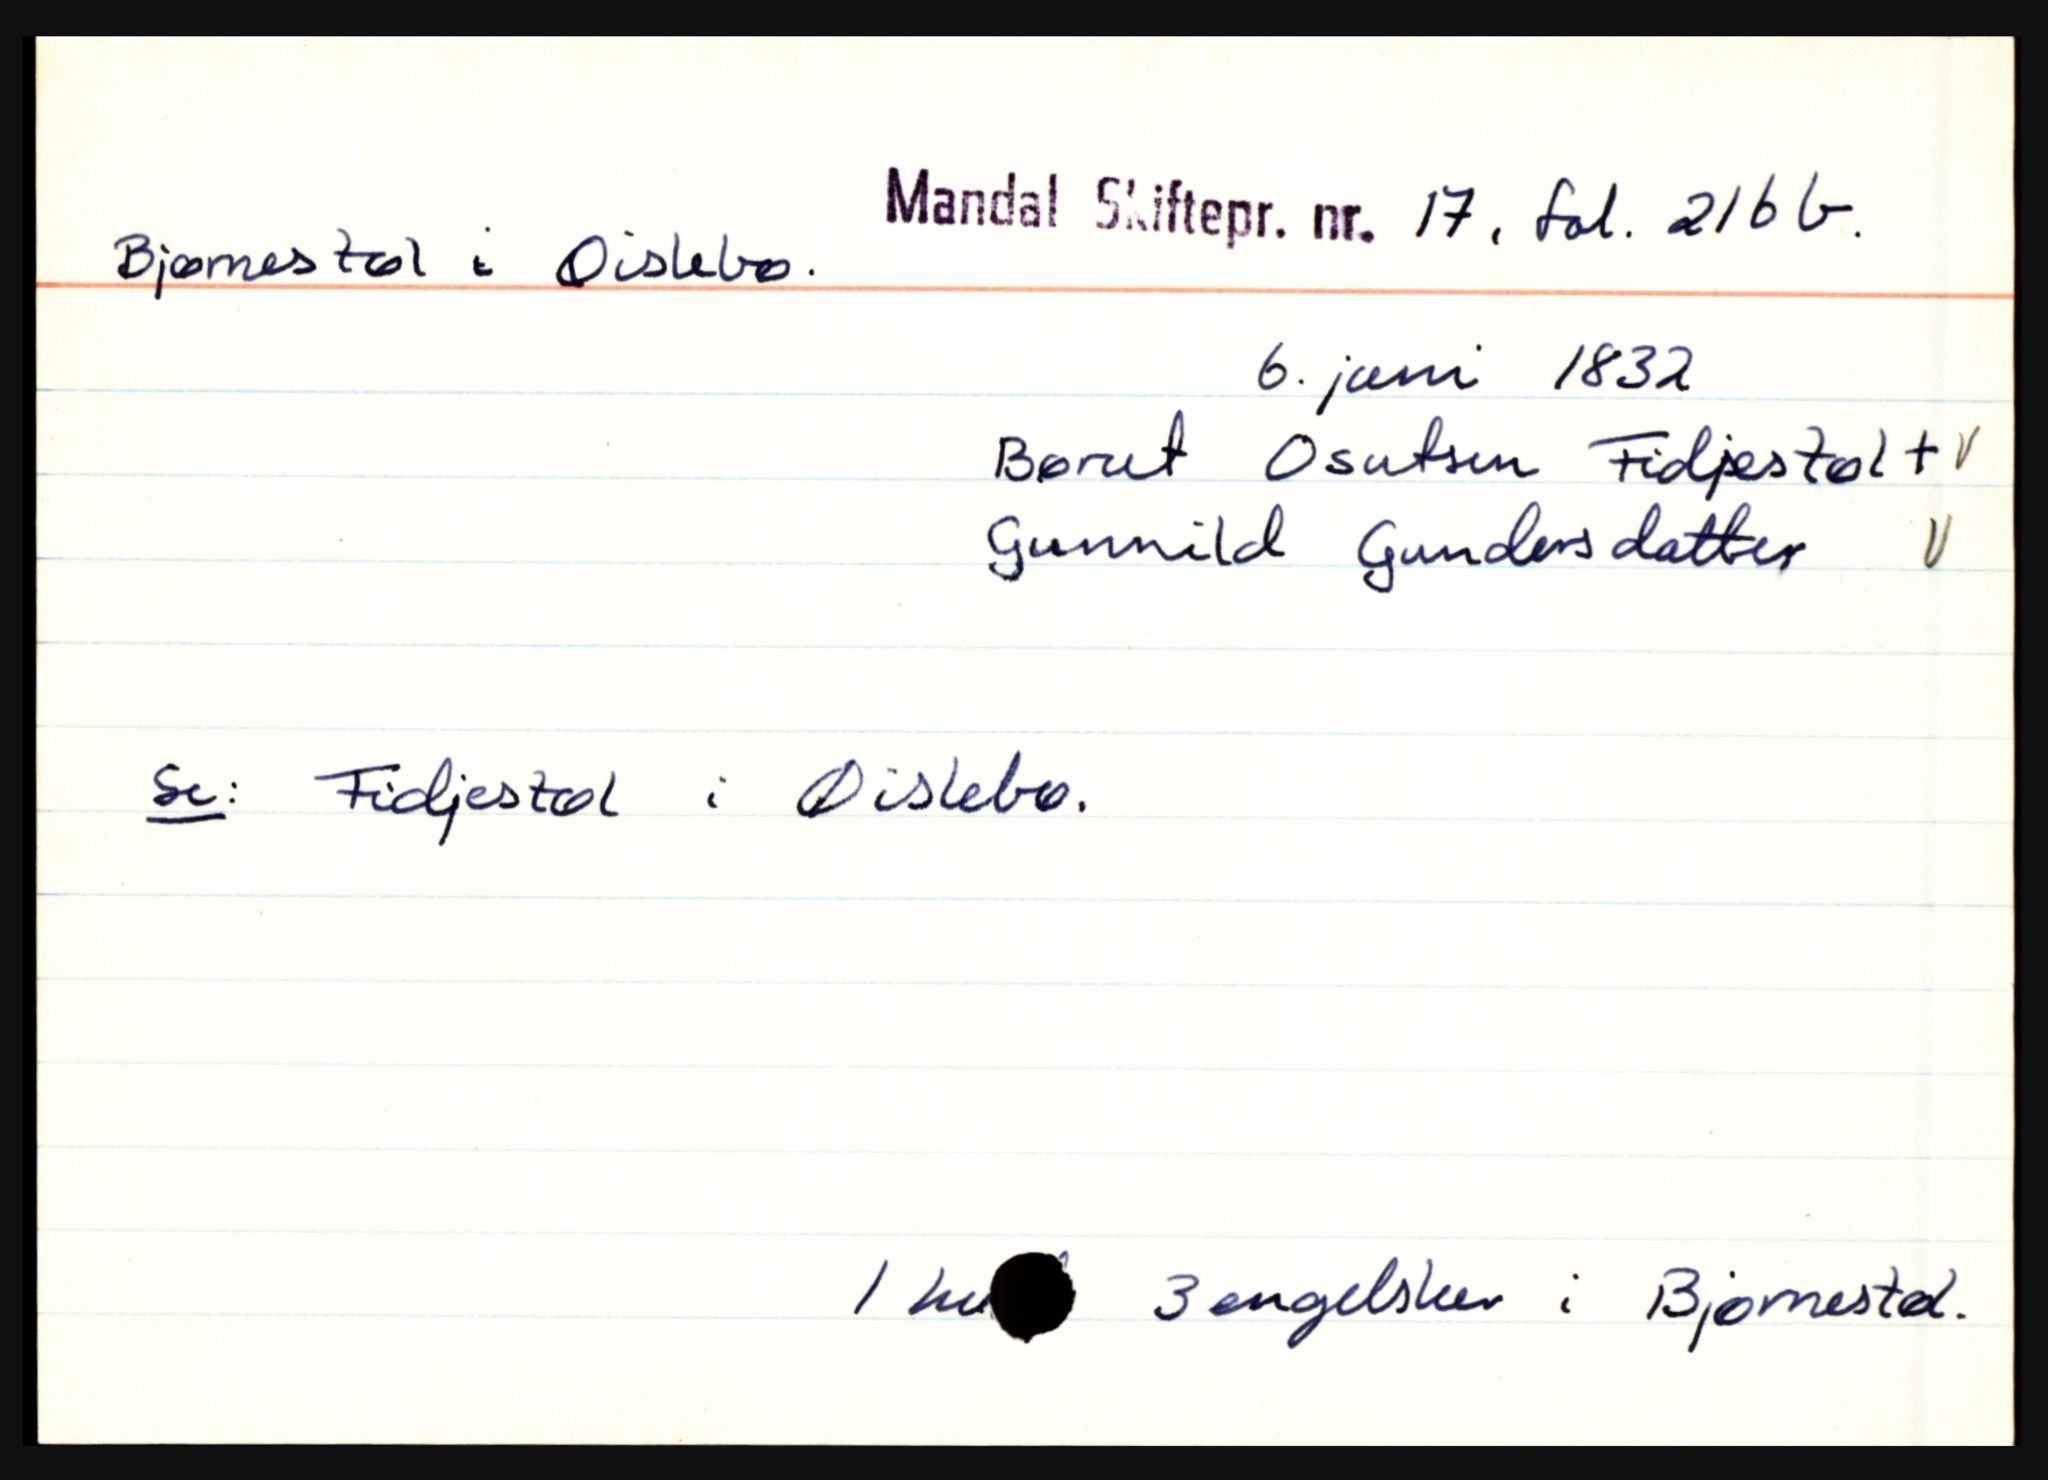 Mandal Skiftepr. nr. 17, fol. 216 b.
Bjørnestøl i Øislebø.
6. juni 1832
Børut Osutsen Fidjestøl + V
Gunnild Gundersdatter V
Se: Fidjestøl i Øislebø.
1 3 engelsker i Bjørnestøl.